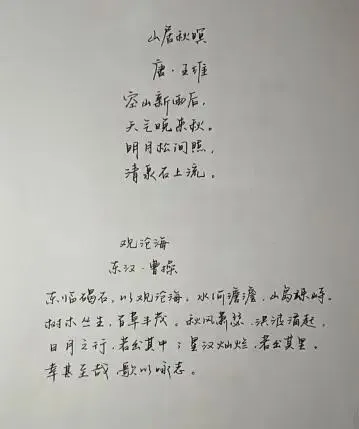 山居秋暝
唐·王维
空山新雨后，
天气晚来秋。
明月松间照，
清泉石上流。
观沧海
东汉·曹操
东临碣石，以观沧海，水何澹澹，山岛竦峙。
树木丛生，百草丰茂。秋风萧瑟，洪波涌起，
日月之行，若出其中；星汉灿烂，若出其里。
幸甚至哉，歌以咏志。